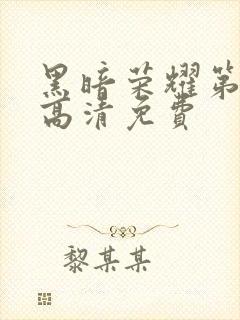 黑暗荣耀第
高清免费
黎某某